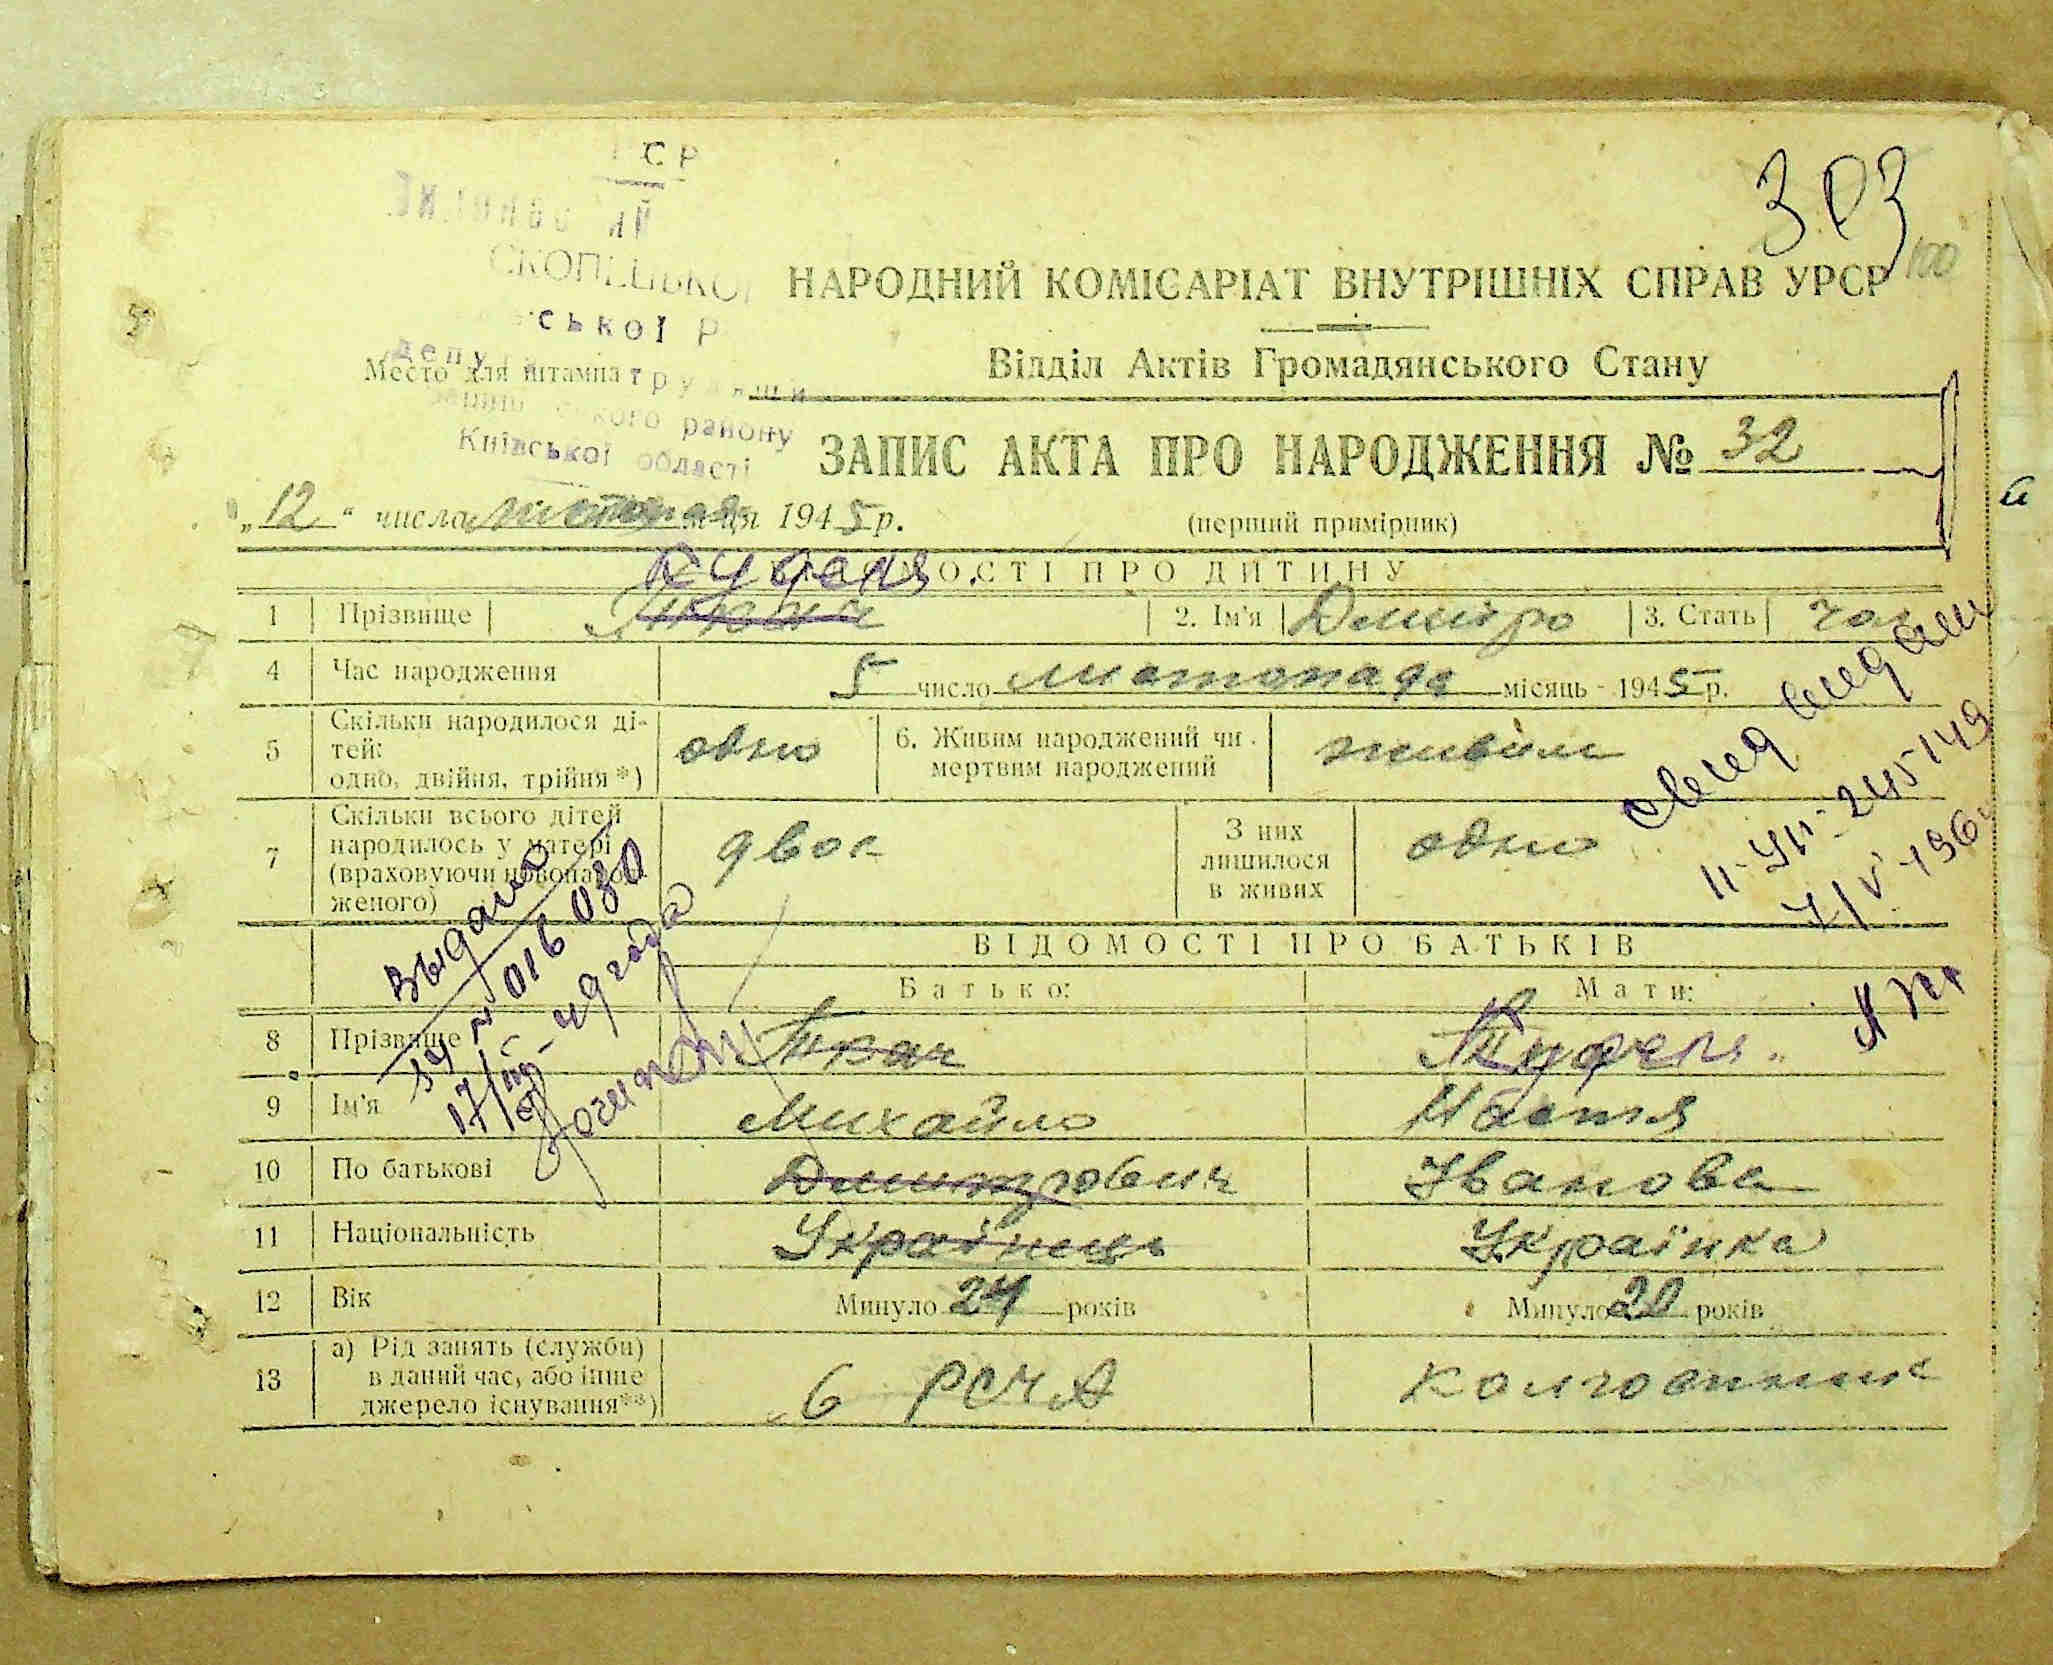 СР
СКОПЕЦЬКОЇ
303
100
НАРОДНИЙ КОМІСАРІАТ ВНУТРІШНІХ СПРАВ УРСР
ської Р
депу
Место для штампа
Відділ Актів Громадянського Стану
ського району
Київської області
ЗАПИС АКТА ПРО НАРОДЖЕННЯ № 32
„12“ числа листопада м-ця 1945 р.
(перший примірник)
Куделя
ВІДОМОСТІ ПРО ДИТИНУ
1 Прізвище Ткач 2. Ім'я Дмитро 3. Стать чол
4 Час народження 5 число листопада місяць 1945 р.
5 Скільки народилося ді-
тей:
одно, двійня, трійня*) одно 6. Живим народжений чи
мертвим народжений живим
7 Скільки всього дітей
народилось у матері
(враховуючи новонарод-
женого) двоє З них
лишилося
в живих одно
7/V-196
выдано
016030
17/III-49 года
ВІДОМОСТІ ПРО БАТЬКІВ
Батько: Мати:
8 Прізвище Ткач Куделя
9 Ім'я Михайло Настя
10 По батькові Дмитрович Іванова
11 Національність Українець Українка
12 Вік Минуло 24 років Минуло 20 років
13 а) Рід занять (служби)
в даний час, або інше
джерело існування**) в РСЧА колгоспник